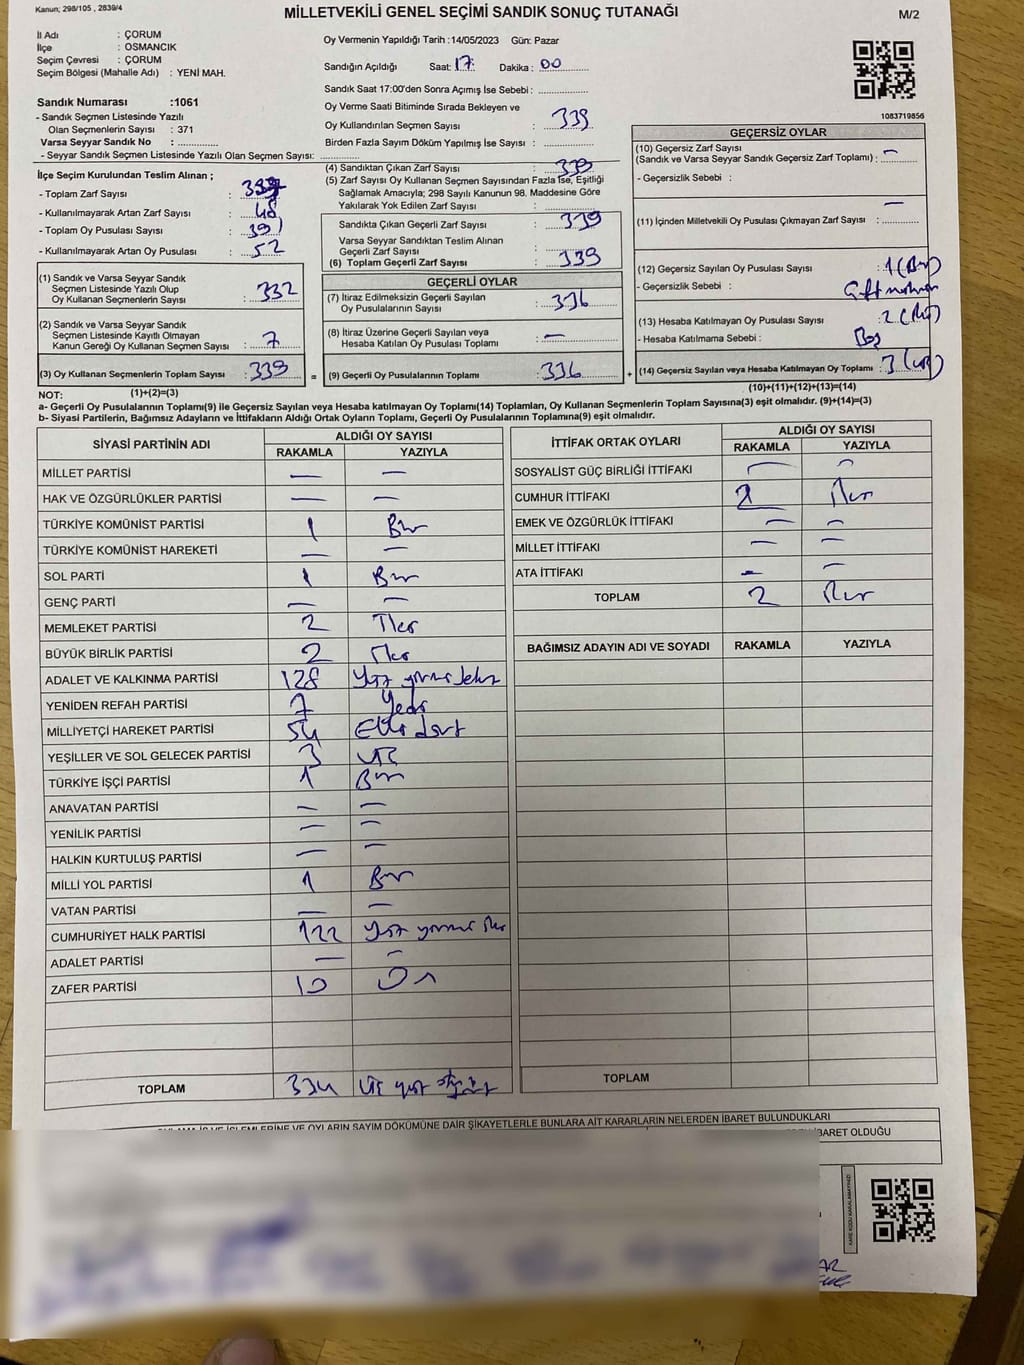 Kanun; 298/105 , 2839/4
MİLLETVEKİLİ GENEL SEÇİMİ SANDIK SONUÇ TUTANAĞI
M/2
İl Adı : ÇORUM
İlçe : OSMANCIK
Seçim Çevresi : ÇORUM
Seçim Bölgesi (Mahalle Adı) : YENİ MAH.
Sandık Numarası :1061
- Sandık Seçmen Listesinde Yazılı
Olan Seçmenlerin Sayısı : 371
Varsa Seyyar Sandık No :
- Seyyar Sandık Seçmen Listesinde Yazılı Olan Seçmen Sayısı:
Oy Vermenin Yapıldığı Tarih :14/05/2023 Gün: Pazar
Sandığın Açıldığı Saat: 17 Dakika : 00
Sandık Saat 17:00'den Sonra Açımış İse Sebebi :
Oy Verme Saati Bitiminde Sırada Bekleyen ve
Oy Kullandırılan Seçmen Sayısı : 339
Birden Fazla Sayım Döküm Yapılmış İse Sayısı :
1083719856
İlçe Seçim Kurulundan Teslim Alınan ;
- Toplam Zarf Sayısı :
- Kullanılmayarak Artan Zarf Sayısı : 48
- Toplam Oy Pusulası Sayısı : 391
- Kullanılmayarak Artan Oy Pusulası : 52
(1) Sandık ve Varsa Seyyar Sandık
Seçmen Listesinde Yazılı Olup
Oy Kullanan Seçmenlerin Sayısı : 332
(2) Sandık ve Varsa Seyyar Sandık
Seçmen Listesinde Kayıtlı Olmayan
Kanun Gereği Oy Kullanan Seçmen Sayısı : 7
(3) Oy Kullanan Seçmenlerin Toplam Sayısı : 339
(4) Sandıktan Çıkan Zarf Sayısı : 339
(5) Zarf Sayısı Oy Kullanan Seçmen Sayısından Fazla İse, Eşitliği
Sağlamak Amacıyla; 298 Sayılı Kanunun 98. Maddesine Göre
Yakılarak Yok Edilen Zarf Sayısı :
Sandıkta Çıkan Geçerli Zarf Sayısı : 339
Varsa Seyyar Sandıktan Teslim Alınan
Geçerli Zarf Sayısı :
(6) Toplam Geçerli Zarf Sayısı : 339
GEÇERLİ OYLAR
(7) İtiraz Edilmeksizin Geçerli Sayılan
Oy Pusulalarının Sayısı : 336
(8) İtiraz Üzerine Geçerli Sayılan veya
Hesaba Katılan Oy Pusulası Toplamı : —
= (9) Geçerli Oy Pusulalarının Toplamı : 336 +
GEÇERSİZ OYLAR
(10) Geçersiz Zarf Sayısı
(Sandık ve Varsa Seyyar Sandık Geçersiz Zarf Toplamı) : —
- Geçersizlik Sebebi :
(11) İçinden Milletvekili Oy Pusulası Çıkmayan Zarf Sayısı : —
(12) Geçersiz Sayılan Oy Pusulası Sayısı : 1 (Bir)
- Geçersizlik Sebebi : Çift mühür
(13) Hesaba Katılmayan Oy Pusulası Sayısı : 2 (İki)
- Hesaba Katılmama Sebebi : Boş
(14) Geçersiz Sayılan veya Hesaba Katılmayan Oy Toplamı : 3 (üç)
NOT: (1)+(2)=(3)
(10)+(11)+(12)+(13)=(14)
a- Geçerli Oy Pusulalarının Toplamı(9) ile Geçersiz Sayılan veya Hesaba katılmayan Oy Toplamı(14) Toplamları, Oy Kullanan Seçmenlerin Toplam Sayısına(3) eşit olmalıdır. (9)+(14)=(3)
b- Siyasi Partilerin, Bağımsız Adayların ve İttifakların Aldığı Ortak Oyların Toplamı, Geçerli Oy Pusulalarının Toplamına(9) eşit olmalıdır.
SİYASİ PARTİNİN ADI ALDIĞI OY SAYISI
RAKAMLA YAZIYLA
MİLLET PARTİSİ — —
HAK VE ÖZGÜRLÜKLER PARTİSİ — —
TÜRKİYE KOMÜNİST PARTİSİ 1 Bir
TÜRKİYE KOMÜNİST HAREKETİ — —
SOL PARTİ 1 Bir
GENÇ PARTİ — —
MEMLEKET PARTİSİ 2 İki
BÜYÜK BİRLİK PARTİSİ 2 İki
ADALET VE KALKINMA PARTİSİ 128 Yüz yirmi sekiz
YENİDEN REFAH PARTİSİ 7 Yedi
MİLLİYETÇİ HAREKET PARTİSİ 54 Elli dört
YEŞİLLER VE SOL GELECEK PARTİSİ 3 üç
TÜRKİYE İŞÇİ PARTİSİ 1 Bir
ANAVATAN PARTİSİ — —
YENİLİK PARTİSİ — —
HALKIN KURTULUŞ PARTİSİ — —
MİLLİ YOL PARTİSİ 1 Bir
VATAN PARTİSİ — —
CUMHURİYET HALK PARTİSİ 122 yüz yirmi iki
ADALET PARTİSİ — —
ZAFER PARTİSİ 10 On
TOPLAM 334 üç yüz otuz dört
İTTİFAK ORTAK OYLARI ALDIĞI OY SAYISI
RAKAMLA YAZIYLA
SOSYALİST GÜÇ BİRLİĞİ İTTİFAKI — —
CUMHUR İTTİFAKI 2 İki
EMEK VE ÖZGÜRLÜK İTTİFAKI — —
MİLLET İTTİFAKI — —
ATA İTTİFAKI — —
TOPLAM 2 İki
BAĞIMSIZ ADAYIN ADI VE SOYADI RAKAMLA YAZIYLA
TOPLAM
VE OYLARIN SAYIM DÖKÜMÜNE DAİR ŞİKAYETLERLE BUNLARA AİT KARARLARIN NELERDEN İBARET BULUNDUKLARI
İBARET OLDUĞU